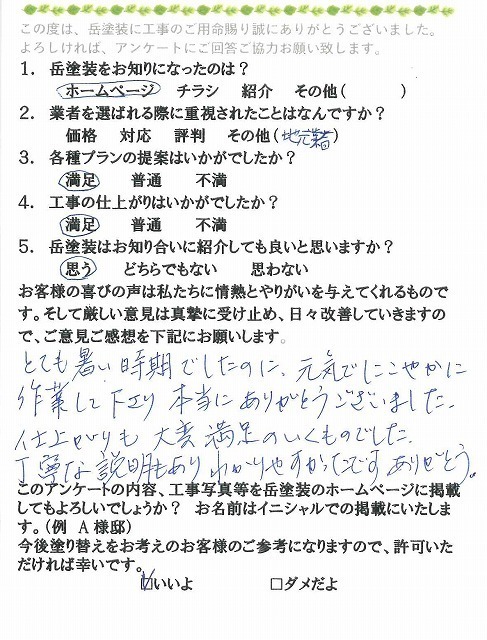 この度は、岳塗装に工事のご用命賜り誠にありがとうございました。
よろしければ、アンケートにご回答ご協力お願い致します。
1. 岳塗装をお知りになったのは？
ホームページ チラシ 紹介 その他( )
2. 業者を選ばれる際に重視されたことはなんですか？
価格 対応 評判 その他(地元業者)
3. 各種プランの提案はいかがでしたか？
満足 普通 不満
4. 工事の仕上がりはいかがでしたか？
満足 普通 不満
5. 岳塗装はお知り合いに紹介しても良いと思いますか？
思う どちらでもない 思わない
お客様の喜びの声は私たちに情熱とやりがいを与えてくれるもので
す。そして厳しい意見は真摯に受け止め、日々改善していきますの
で、ご意見ご感想を下記にお願いします。
とても暑い時期でしたのに、元気でにこやかに
作業して下さり 本当にありがとうございました。
仕上がりも 大変 満足のいくものでした。
丁寧な説明もあり わかりやすかったです ありがとう。
このアンケートの内容、工事写真等を岳塗装のホームページに掲載
してもよろしいでしょうか？ お名前はイニシャルでの掲載にいたしま
す。(例 A 様邸)
今後塗り替えをお考えのお客様のご参考になりますので、許可いた
だければ幸いです。
☑いいよ □ダメだよ